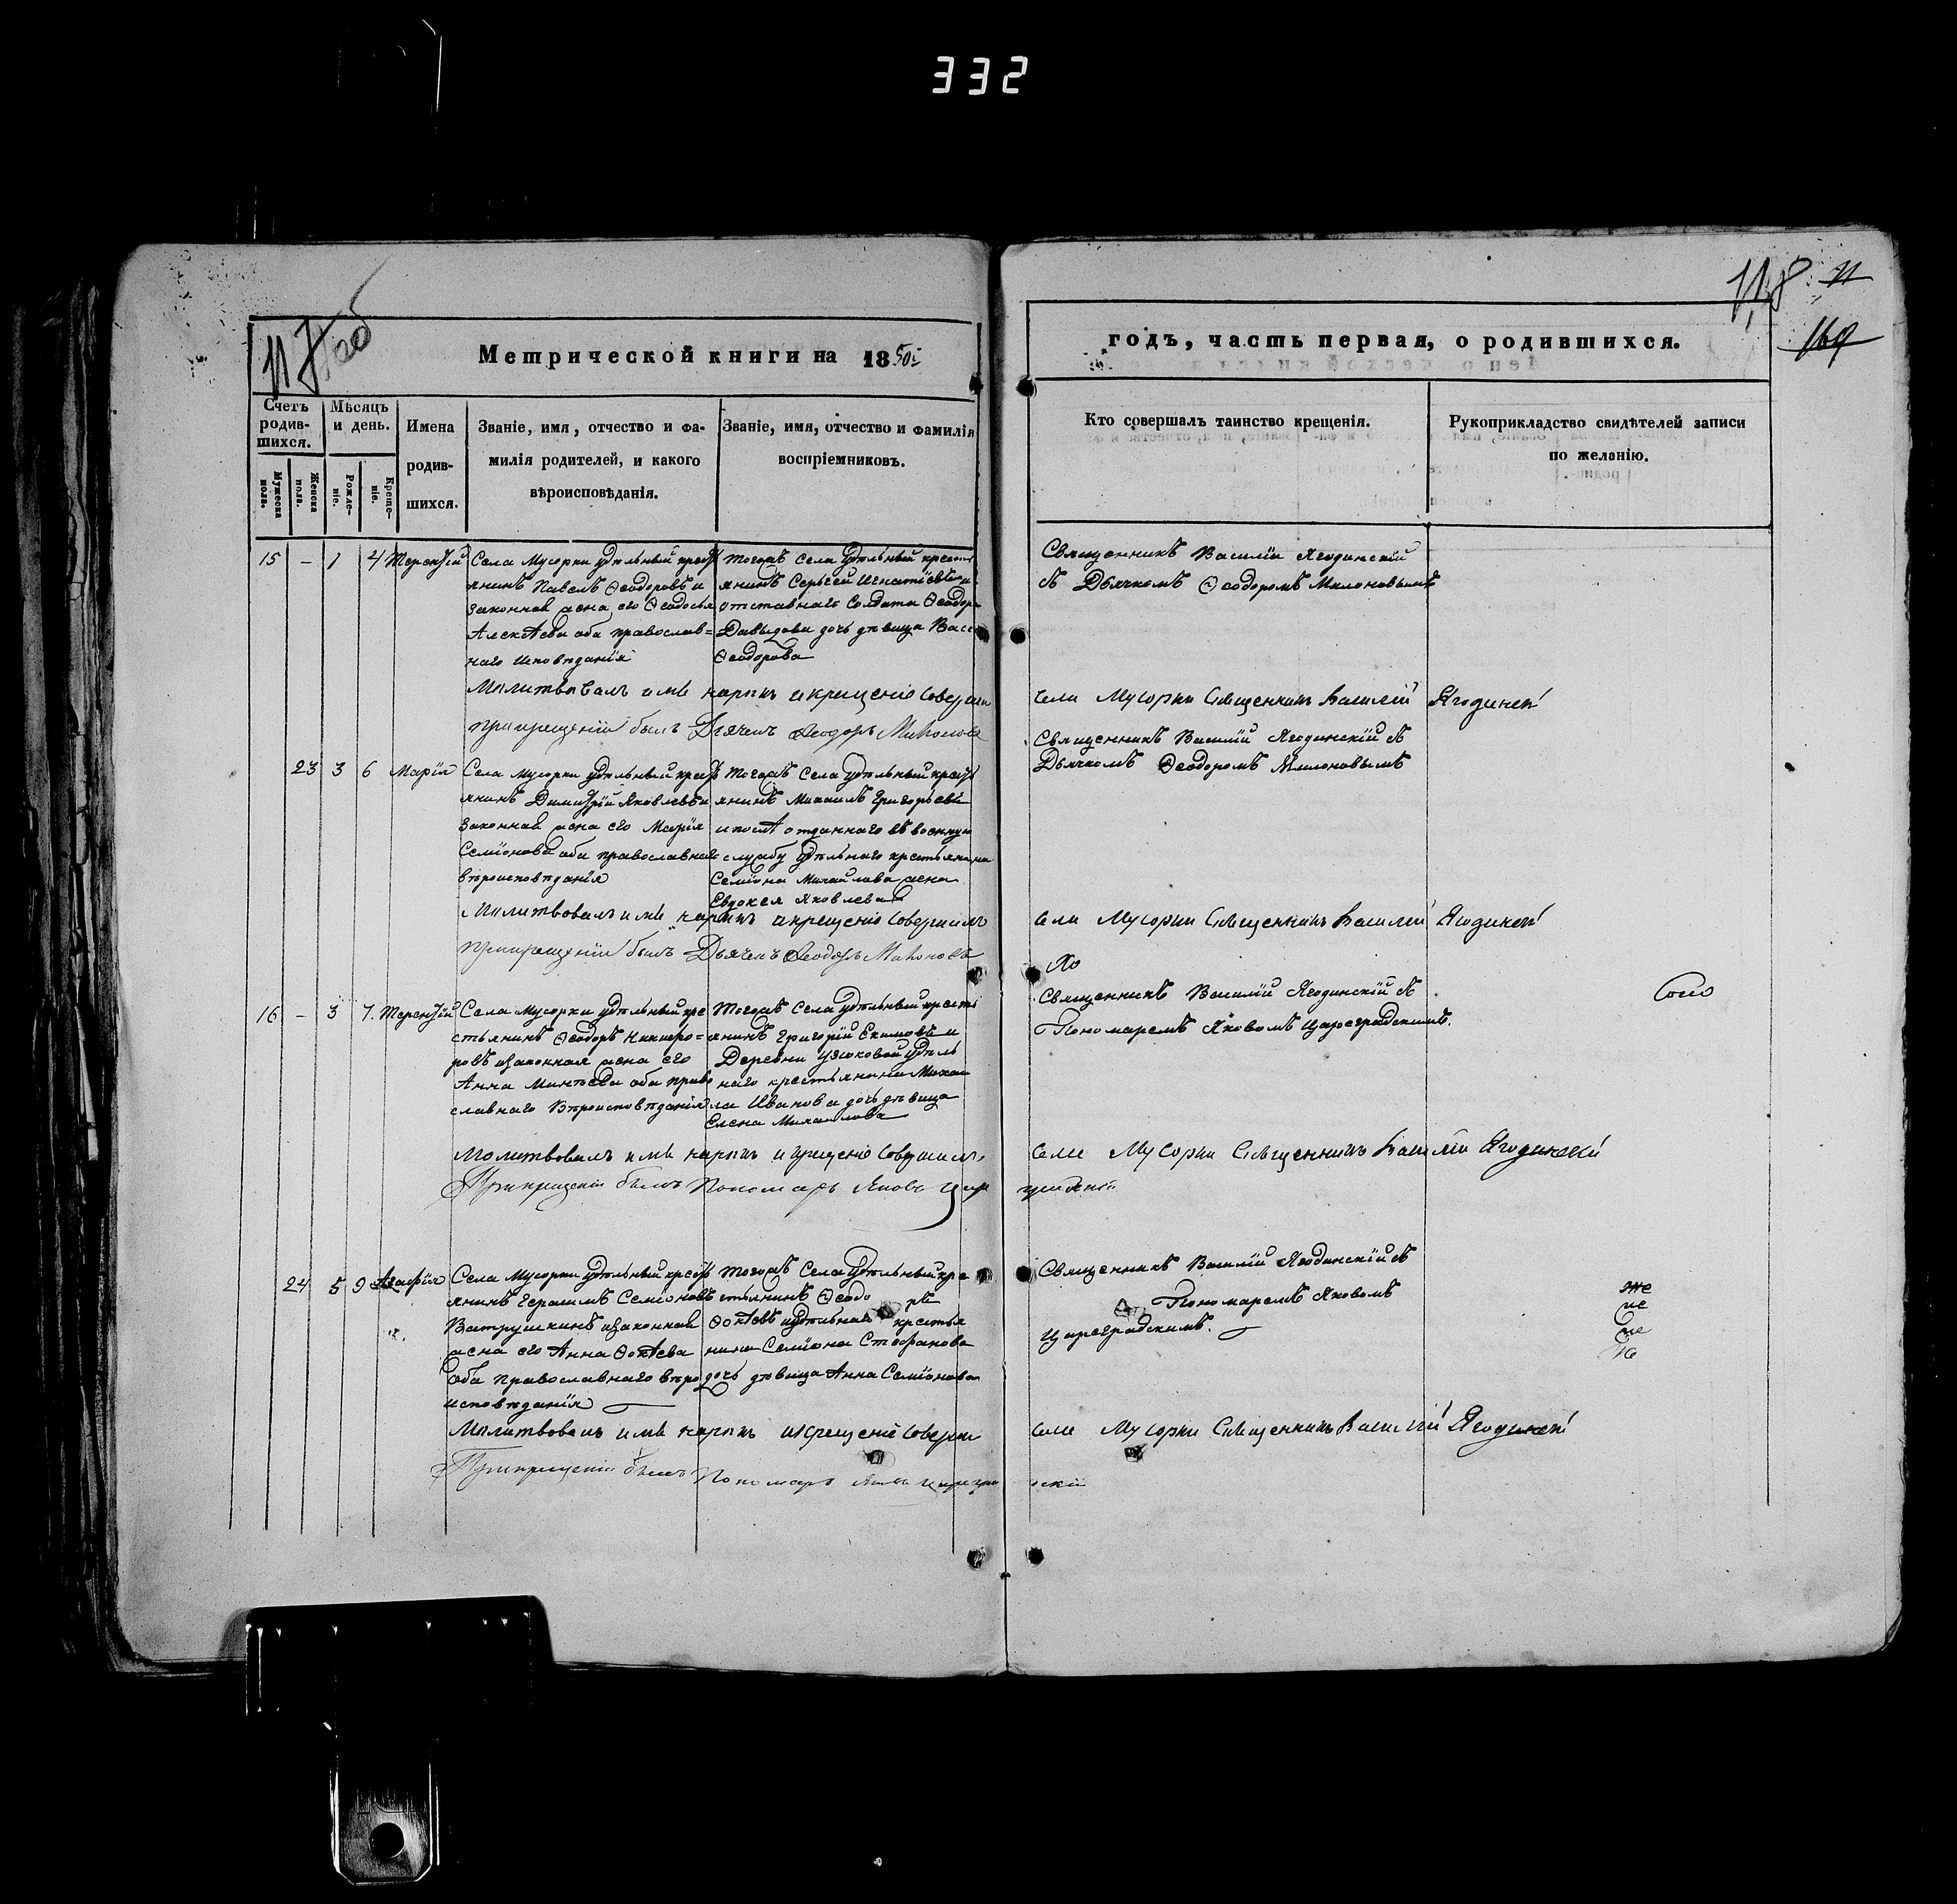 332
118
169
Метрической книги на 1850й
годъ, часть первая, о родившихся.
Счетъ родив-шихся.
Мужеска пола.
Женска пола.
Мѣсяцъ и день.
Рожде-ніе.
Креще-ніе.
Имена
родив-
шихся.
Званіе, имя, отчество и фа-
милія родителей, и какого
вѣроисповѣданія.
Званіе, имя, отчество и фамилія
воспріемниковъ.
Кто совершалъ таинство крещенія.
Рукоприкладство свидѣтелей записи
по желанію.
15 – 1 4 Терентій
Села Мусорки удѣльный крест
янинъ Павелъ Ѳеодоровъ и
законная жена его Ѳеодосья
Алексѣева оба православ=
наго исповѣданія
тогожъ села удѣльный кресть
янинъ Сергѣй Игнатіевъ и
отставнаго солдата Ѳеодора
Давыдова дочь дѣвица Васс
Ѳеодорова
Священникъ Василій Ягодинскій
съ Дьячкомъ Ѳеодоромъ Милоновымъ
Молитвовалъ имя нарекъ и крещеніе соверши
села Мусорки Священникъ Василій Ягодинскі
При крещеніи былъ Дьячекъ Ѳеодоръ Милоновъ
23 3 6 Марія
Села Мусорки удѣльный крест
янинъ Димитрій Яковлевъ и
законная жена его Марія
Семіонова оба православнаго
вѣроисповѣданія
тогожъ села удѣльный крест
янинъ Михаилъ Григорьевъ
и послѣ отданнаго въ военную
службу удѣльнаго крестьянина
Семіона Михаилова жена
Евдокея Яковлева
Священникъ Василій Ягодинскій съ
Дьячкомъ Ѳеодоромъ Милоновымъ
Молитвовалъ имя нарекъ и крещеніе совершилъ
села Мусорки Священникъ Василій Ягодинскі
При крещеніи былъ Дьячекъ Ѳеодоръ Милоновъ
16 – 3 7. Терентій
Села Мусорки удѣльный кре
стьянинъ Ѳеодоръ Никифо=
ровъ изаконная жена его
Анна Минѣева оба право
славнаго вѣроисповѣданія
тогожъ села удѣльный кресть
янинъ Григорій Екимовъ и
Деревни Узюковой удѣль
наго крестьянина Михаи
ла Иванова дочь дѣвица
Елена Михаилова
Священникъ Василій Ягодинскій съ
Пономаремъ Яковомъ Цареградскимъ.
Молитвовалъ имя нарекъ и крещеніе совершилъ
села Мусорки Священникъ Василій Ягодинскій
При крещеніи былъ Пономарь Яковъ Царе
24 5 9 Агафія
Села Мусорки удѣльный крест
янинъ Герасимъ Семіоновъ
Ватрушкинъ изаконная
жена его Анна Ѳокѣева
оба православнаго вѣро
исповѣданія
тогожъ села удѣльный кре
стьянинъ Ѳеодоръ
Ѳокѣевъ и удѣльнаго крестья
нина Семіона Стефанова
дочь дѣвица Анна Семіонова
Священникъ Василій Ягодинскій съ
Пономаремъ Яковомъ
Цареградскимъ.
Молитвовалъ имя нарекъ и крещеніе соверши
села Мусорки Священникъ Василій Ягодинскі
При крещеніи былъ Пономарь Яковъ Цареград
скій